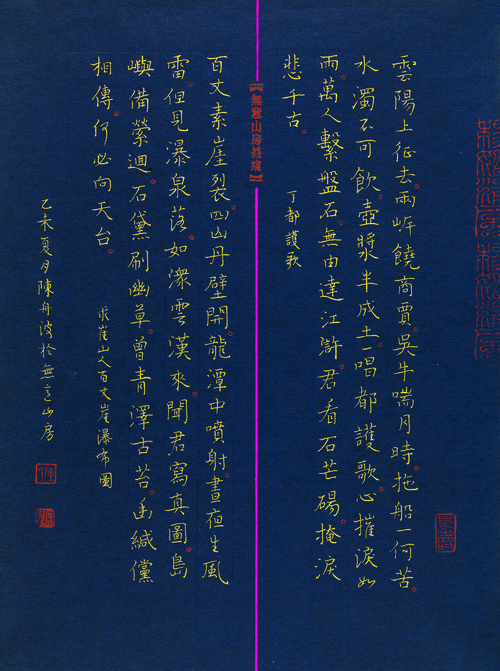 雲陽上征去兩岸饒商賈吳牛喘月時拖船一何苦
水濁不可飲壺漿半成土一唱都護歌心摧淚如
雨萬人繫盤石無由達江滸君看石芒碭掩淚
悲千古
丁都護歌
無意山房
百丈素崖裂四山丹壁開龍潭中噴射晝夜生風
雷但見瀑泉落如潨雲漢來聞君寫真圖島
嶼備縈迴石黛刷幽草曾青澤古苔幽緘儻
相傳何必向天台
求崔山人百丈崖瀑布圖
乙未夏月陳舟波於無意山房